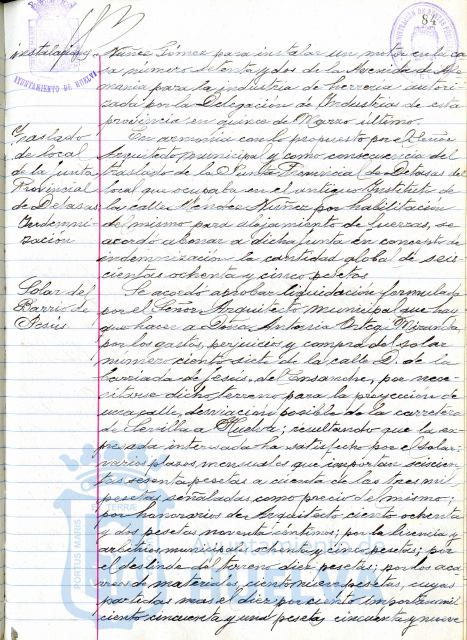 84
AYUNTAMIENTO DE HUELVA
instalación
Núñez Gómez para instalar un motor en la ca-
sa número setenta y dos de la Avenida de Ale-
mania para la industria de herrería autori-
zada por la Delegación de Industrias de esta
provincia en quince de Marzo último.
Traslado
de local
de la Junta
Provincial
de Detasas
Indemni-
zación
En armonía con lo propuesto por el Señor
Arquitecto municipal y como consecuencia del
traslado de la Junta Provincial de Detasas del
local que ocupaba en el antiguo Instituto de
la calle Méndez Núñez, por habilitación
del mismo para alojamiento de fuerzas, se
acordó abonar a dicha Junta en concepto de
indemnización la cantidad global de seis-
cientas ochenta y cinco pesetas
Solar del
Barrio de
Jesús
Se acordó aprobar liquidación formulada
por el Señor Arquitecto municipal que hay
que hacer a Doña Antonia Miranda,
por los gastos, perjuicios y compra del solar
número ciento siete de la calle D. de la
barriada de Jesús, del Ensanche, por nece-
sitarse dicho terreno para la proyección de
una calle, desviación posible de la carretera
de Sevilla a Huelva; resultando que la ex-
presada interesada ha satisfecho por el solar
varios plazos mensuales que importan seiscien-
tas sesenta pesetas a cuenta de las tres mil
pesetas señaladas como precio del mismo;
por honorarios de Arquitecto ciento ochenta
y dos pesetas noventa céntimos; por la licencia y
arbitrios municipales ochenta y cinco pesetas; por
el deslinde del terreno diez pesetas; por los aca-
rreos de materiales, ciento nueve pesetas, cuyas
partidas mas el diez por ciento importan mil
ciento cincuenta y una pesetas cincuenta y nueve
PORTUS MARIS
ET TERRAE
Ayuntamiento de
HUELVA